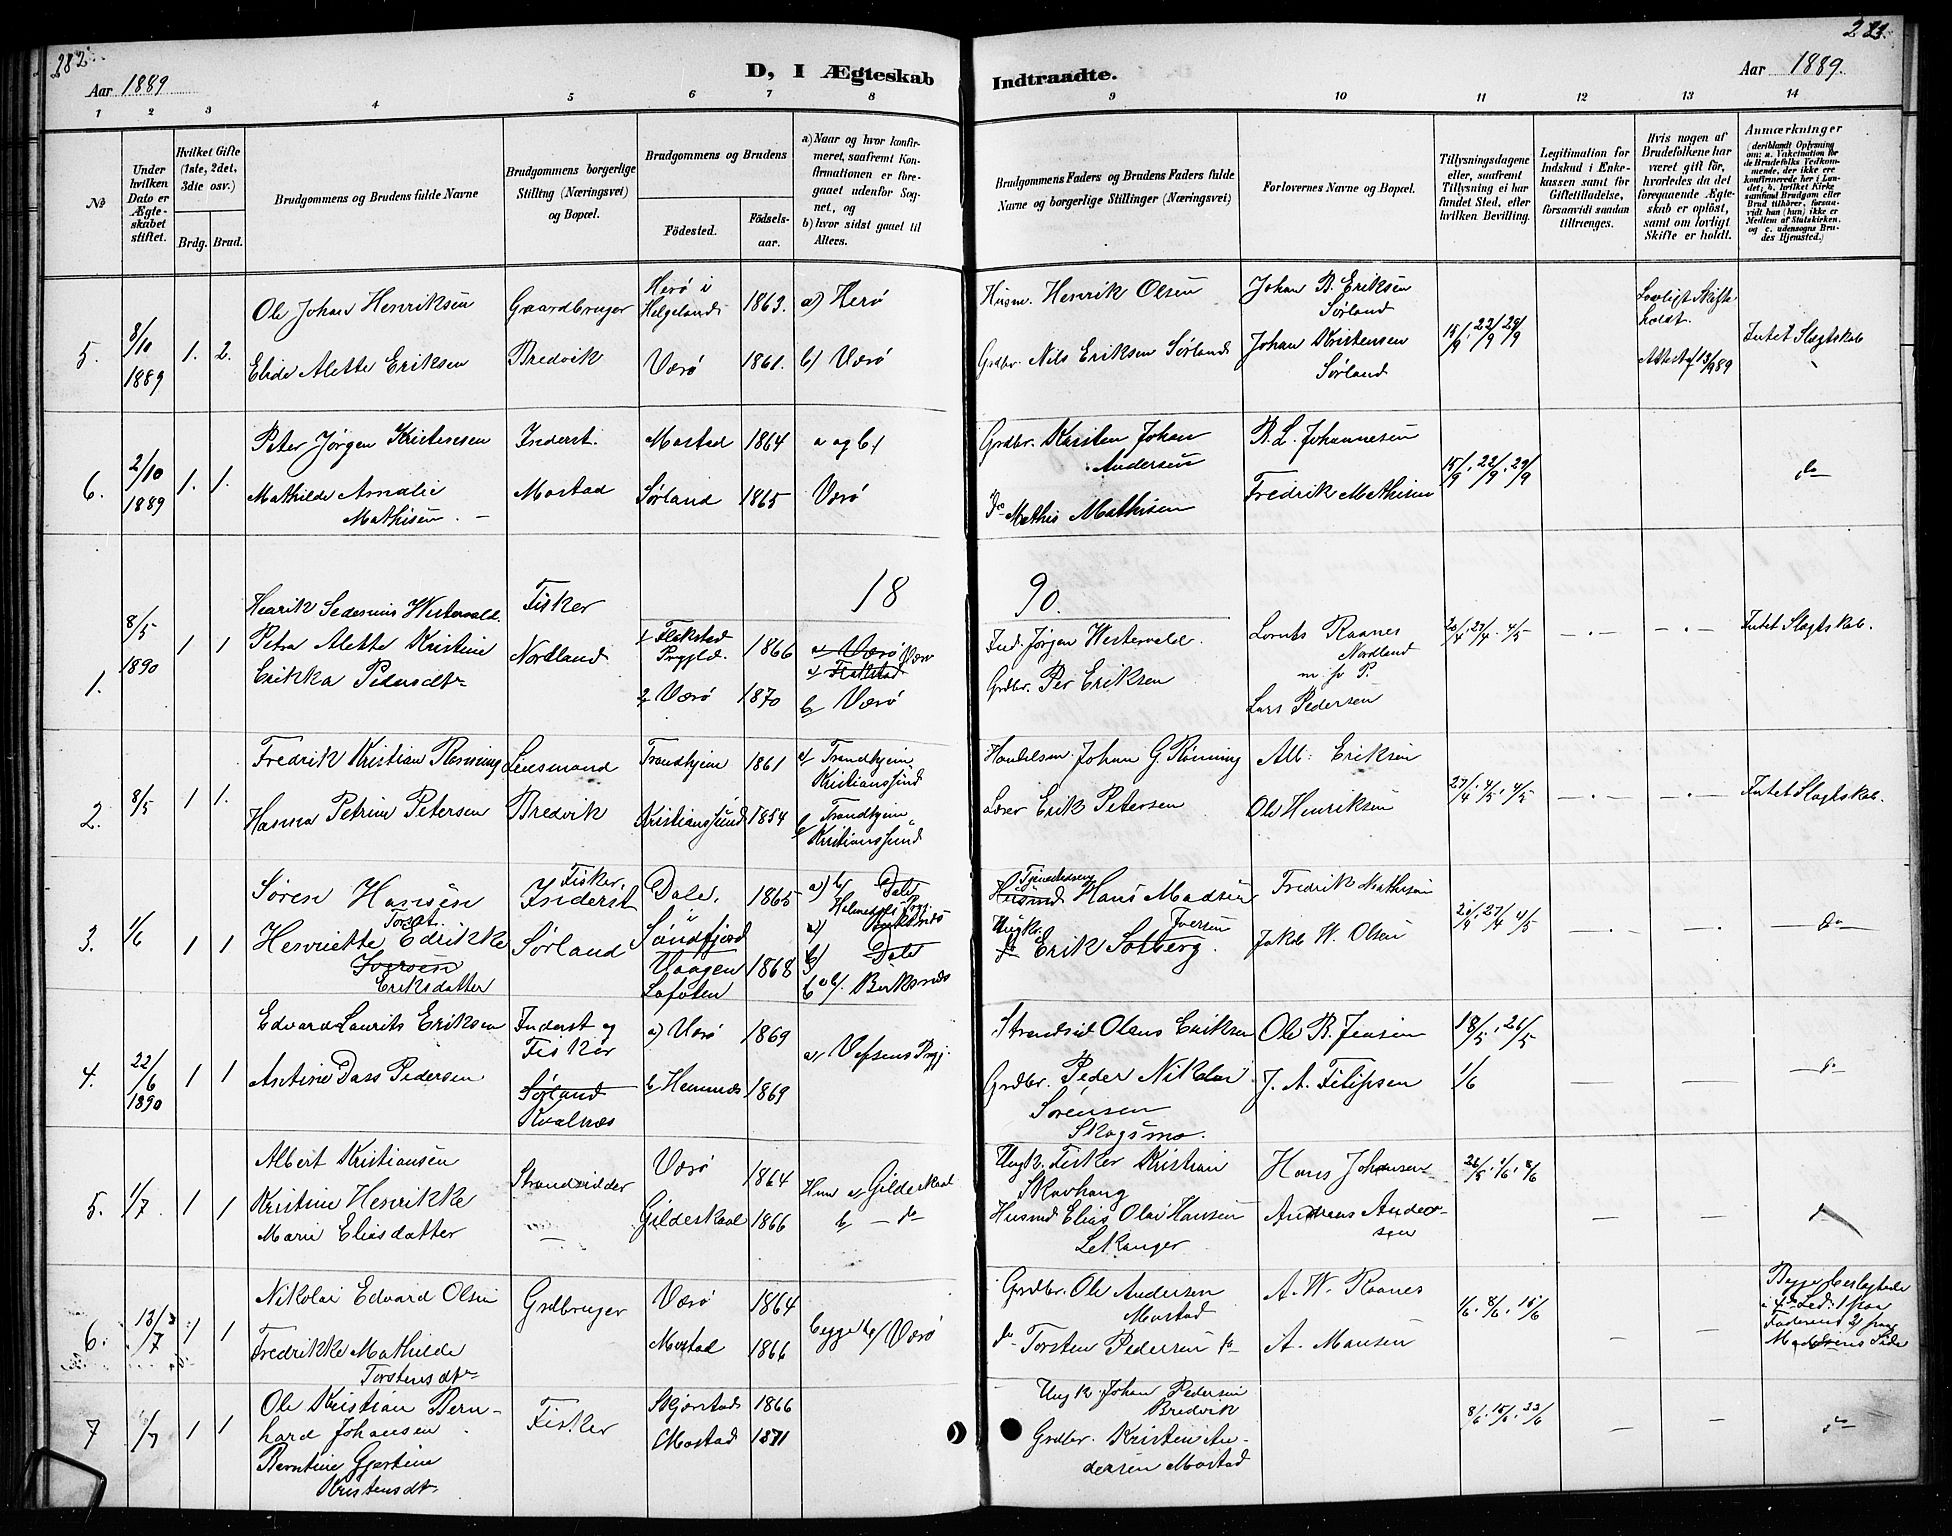 282.
283.
Aar 1889
D, I Ægteskab Indtraadte.
Aar 1889.
1 2 3 4 5 6 7 8 9 10 11 12 13 14
No
Under hvilken Dato er Ægteskabet stiftet.
Hvilket Gifte (1ste, 2det, 3die osv.)
Brdg. Brud.
Brudgommens og Brudens fulde Navne
Brudgommens borgerlige Stilling (Næringsvei) og Bopæl.
Brudgommens og Brudens
Födested.
Födselsaar.
a) Naar og hvor konfirmeret, saafremt Konfirmationen er foregaaet udenfor Sognet, og
b) hvor sidst gaaet til Alters.
Brudgommens Faders og Brudens Faders fulde Navne og borgerlige Stillinger (Næringsvei)
Forlovernes Navne og Bopæl.
Tillysningsdagene eller, saafremt Tillysning ei har fundet Sted, efter hvilken Bevilling.
Legitimation for Indskud i Enkekassen samt for Giftetilladelse, forsaavidt saadan tiltrænges.
Hvis nogen af Brudefolkene har været gift før, hvorledes da det foregaaende Ægteskab er opløst, samt om lovligt Skifte er holdt.
Anmærkninger (deriblandt Oplysning om: a. Vakcination for de Brudefolks Vedkommende, der ikke ere konfirmerede her i Landet; b. hvilket Kirkesamfund Brudgom eller Brud tilhører, forsaavidt han (hun) ikke er Medlem af Statskirken, og c. udensogns Brudes Hjemsted.)
5. 8/10 1889 1. 2.
Ole Johan Henriksen
Elide Alette Eriksen
Gaardbruger
Bredvik
Herø i Helgeland 1863.
Værø 1861.
a) Herø
b) Værø
Husm. Henrik Olsen
Grdbr. Nils Eriksen Sørland
Johan B. Eriksen
Sørland
Johan Kristensen
Sørland
15/9. 22/9 29/9
Lovligt Skifte holdt.
Attest af 13/9 89
Intet Slagtskab
6. 2/10 1889 1. 1.
Peter Jørgen Kristensen
Mathilde Amalie
Mathisen. -
Inderst.
Mostad
Mostad 1864
Sørland 1865
a og b)
Værø
Grdbr. Kristen Johan
Andersen
Do Mathis Mathisen
B. L. Johannesen
Fredrik Mathisen
15/9. 22/9. 29/9
do
18 90.
1. 8/5 1890 1 1
Henrik Sedenius Westervald.
Petra Alette Kristine
Erikka Pedersdtr
Fisker
Nordland
Flakstad
Prgjld. 1866
Værø 1870
a) Værø Værø
a) Flakstad
b) Værø
Ind. Jørgen Westervald.
Grdbr. Per Eriksen
Lornts Raanes
Nordland
m. f. P.
Lars Pedersen
20/4. 27/4. 4/5
— . —
— . —
Intet Slagtskab.
2. 8/5 1 1.
Fredrik Kristian Rønning
Hanna Petrine Petersen
Lensmand
Bredvik
Trondhjem 1861
Kristianssund 1854
a) Trondhjem
Kristianssund
b) Trondhjem
Kristianssund
Handelsm. Johan G Rønning
Lærer Erik Petersen
Alb: Eriksen
Ole Henriksen
27/4. 4/5. 4/5
— . —
— . —
Intet Slagtskab.
3. 1/6 1 1
Søren Hansen
Torset.
Henriette Edrikke
Iversen
Eriksdatter
Fisker.
Inderst
Sørland
Dale, 1865
i
Søndfjord
Vaagen 1868
Lofoten
a) b/ Dale
a)
b) Dale
b a b/. Birksnæs
Tjenestedreng
Husmd Hans Madsen
Ungk. Iversen
Erik Solberg.
Fredrik Mathisen
Jakob W. Olsen
20/4. 27/4 4/5
— . —
— . —
do
4. 22/6 1890 1 1
Edvard Laurits Eriksen
Antine Dass Pedersen
Inderst og
Fisker
Sørland
Kvalnæs
a) Værø 1869
b Hemnæs 1869
a) Vefsens Prgj.
Strandsid Olaus Eriksen
Grdbr. Peder Nikolai
Sørensen
Skogsmo.
Ole B. Jensen
J. A. Filipsen
18/5. 26/5
1/6
—
—
do
5. 1/7. 1 1
Albert Kristiansen
Kristine Henrikke
Marie Eliasdatter
Strandsidder
—
Værø 1864
Gildeskaal 1866
Hun a) Gildeskaal
b — do
Ungk. Fisker Kristian
Skavhaug
Husmd Elias Olai Hansen
Lekanger
Hans Johansen
Andreas Andersen
26/5. 1/6. 8/6
—
—
6. 13/7 1 1
Nikolai Edvard Olsen
Fredrikke Mathilde
Torstensdtr
Grdbruger
Værø 1864
Mostad 1866
begge b/ Værø
Grdbr. Ole Andersen
Mostad
do Torsten Pedersen do
A. W. Raanes
A. Monsen
1/6. 8/6. 15/6
—
—
Begge beslægtede
i 4de Led: 1 paa
Faderens 2) paa
Moderens Side
7 1/7 1 1
Ole Kristian Bern-
hard Johansen.
Berntine Gjertine
Kristensdtr
Fisker
1866
Mostad 1871
Ungk. Johan Pedersen
Bredvik
Grdbr. Kristen An-
dersen Mostad
8/6. 15/6. 22/6
—
—
do